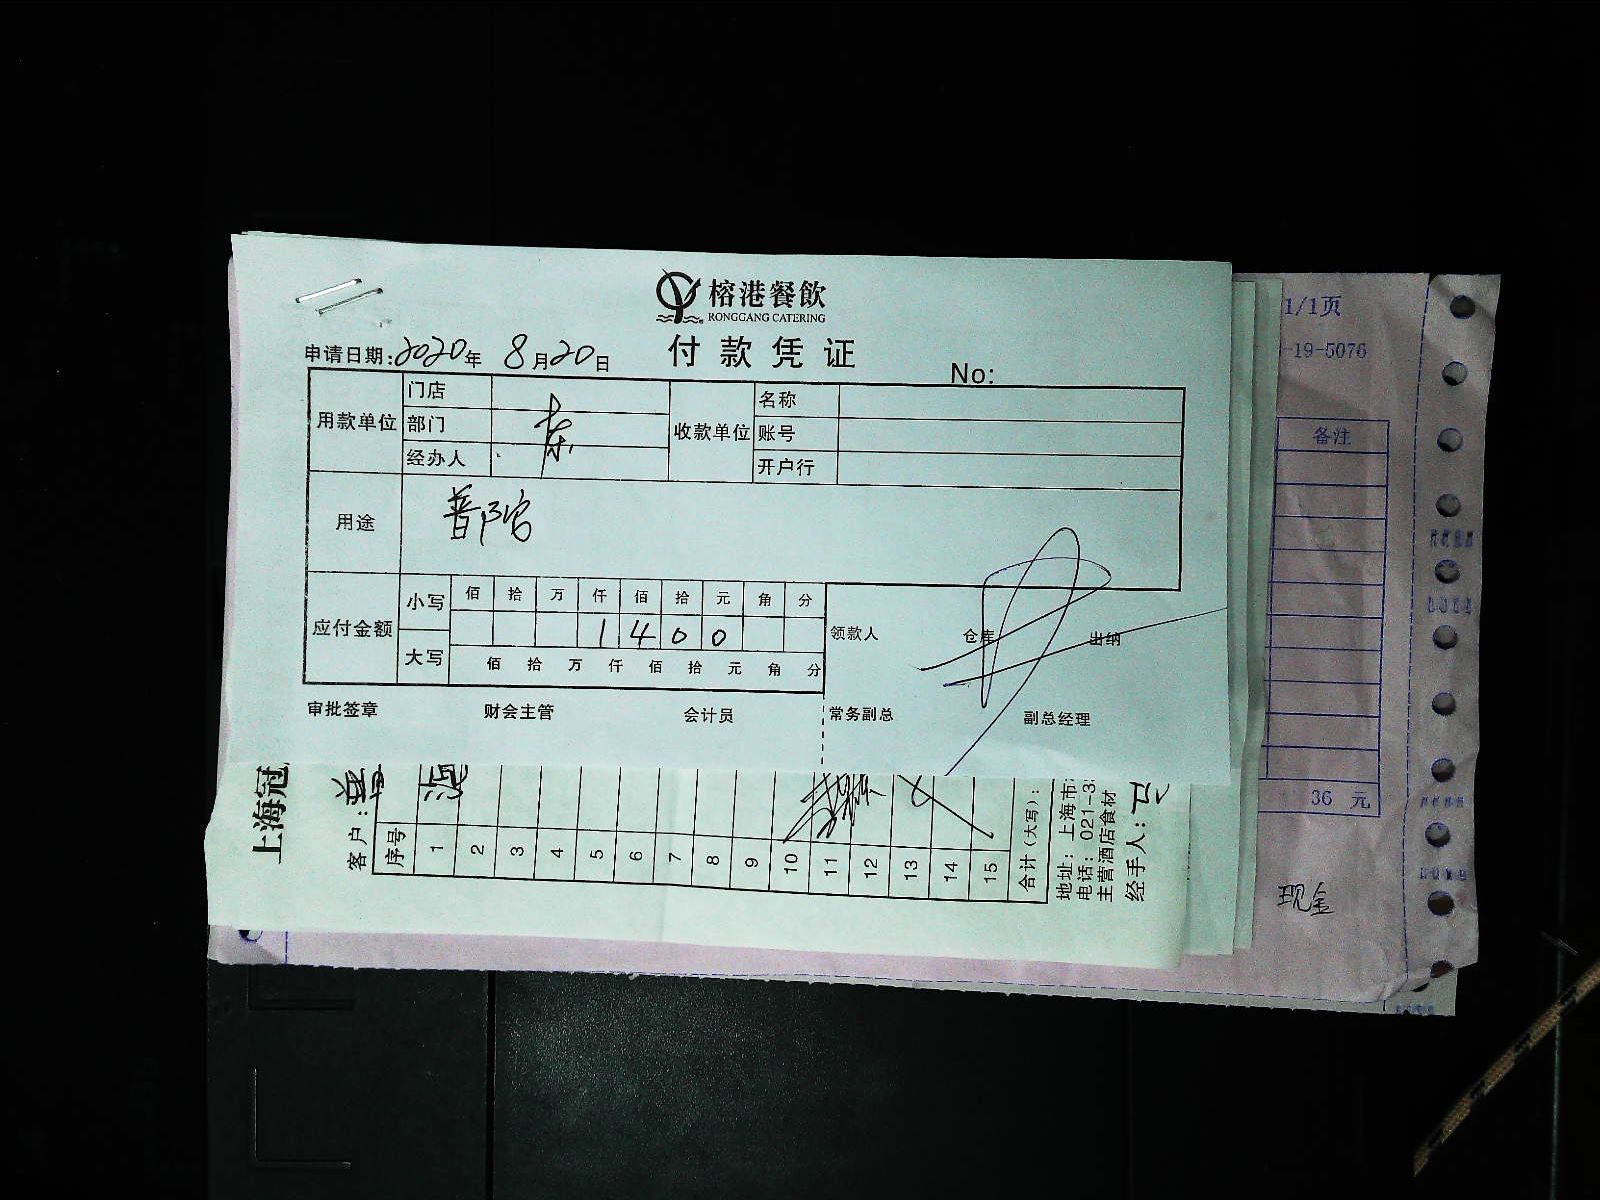 榕港餐飲
RONGGANG CATERING
付款凭证
申请日期:2020年 8月20日
No:
用款单位
门店
部门
经办人
收款单位
名称
账号
开户行
用途
普陀宫
应付金额
小写
佰 拾 万 仟 佰 拾 元 角 分
1 4 0 0
大写
佰 拾 万 仟 佰 拾 元 角 分
领款人 仓库 出纳
审批签章 财会主管 会计员 常务副总 副总经理
上海冠
客户:
序号
1
2
3
4
5
6
7
8
9
10
11
12
13
14
15
合计(大写):
地址:上海市
电话:021-3
主营酒店食材
经手人:
1/1页
-19-5076
备注
36 元
现金